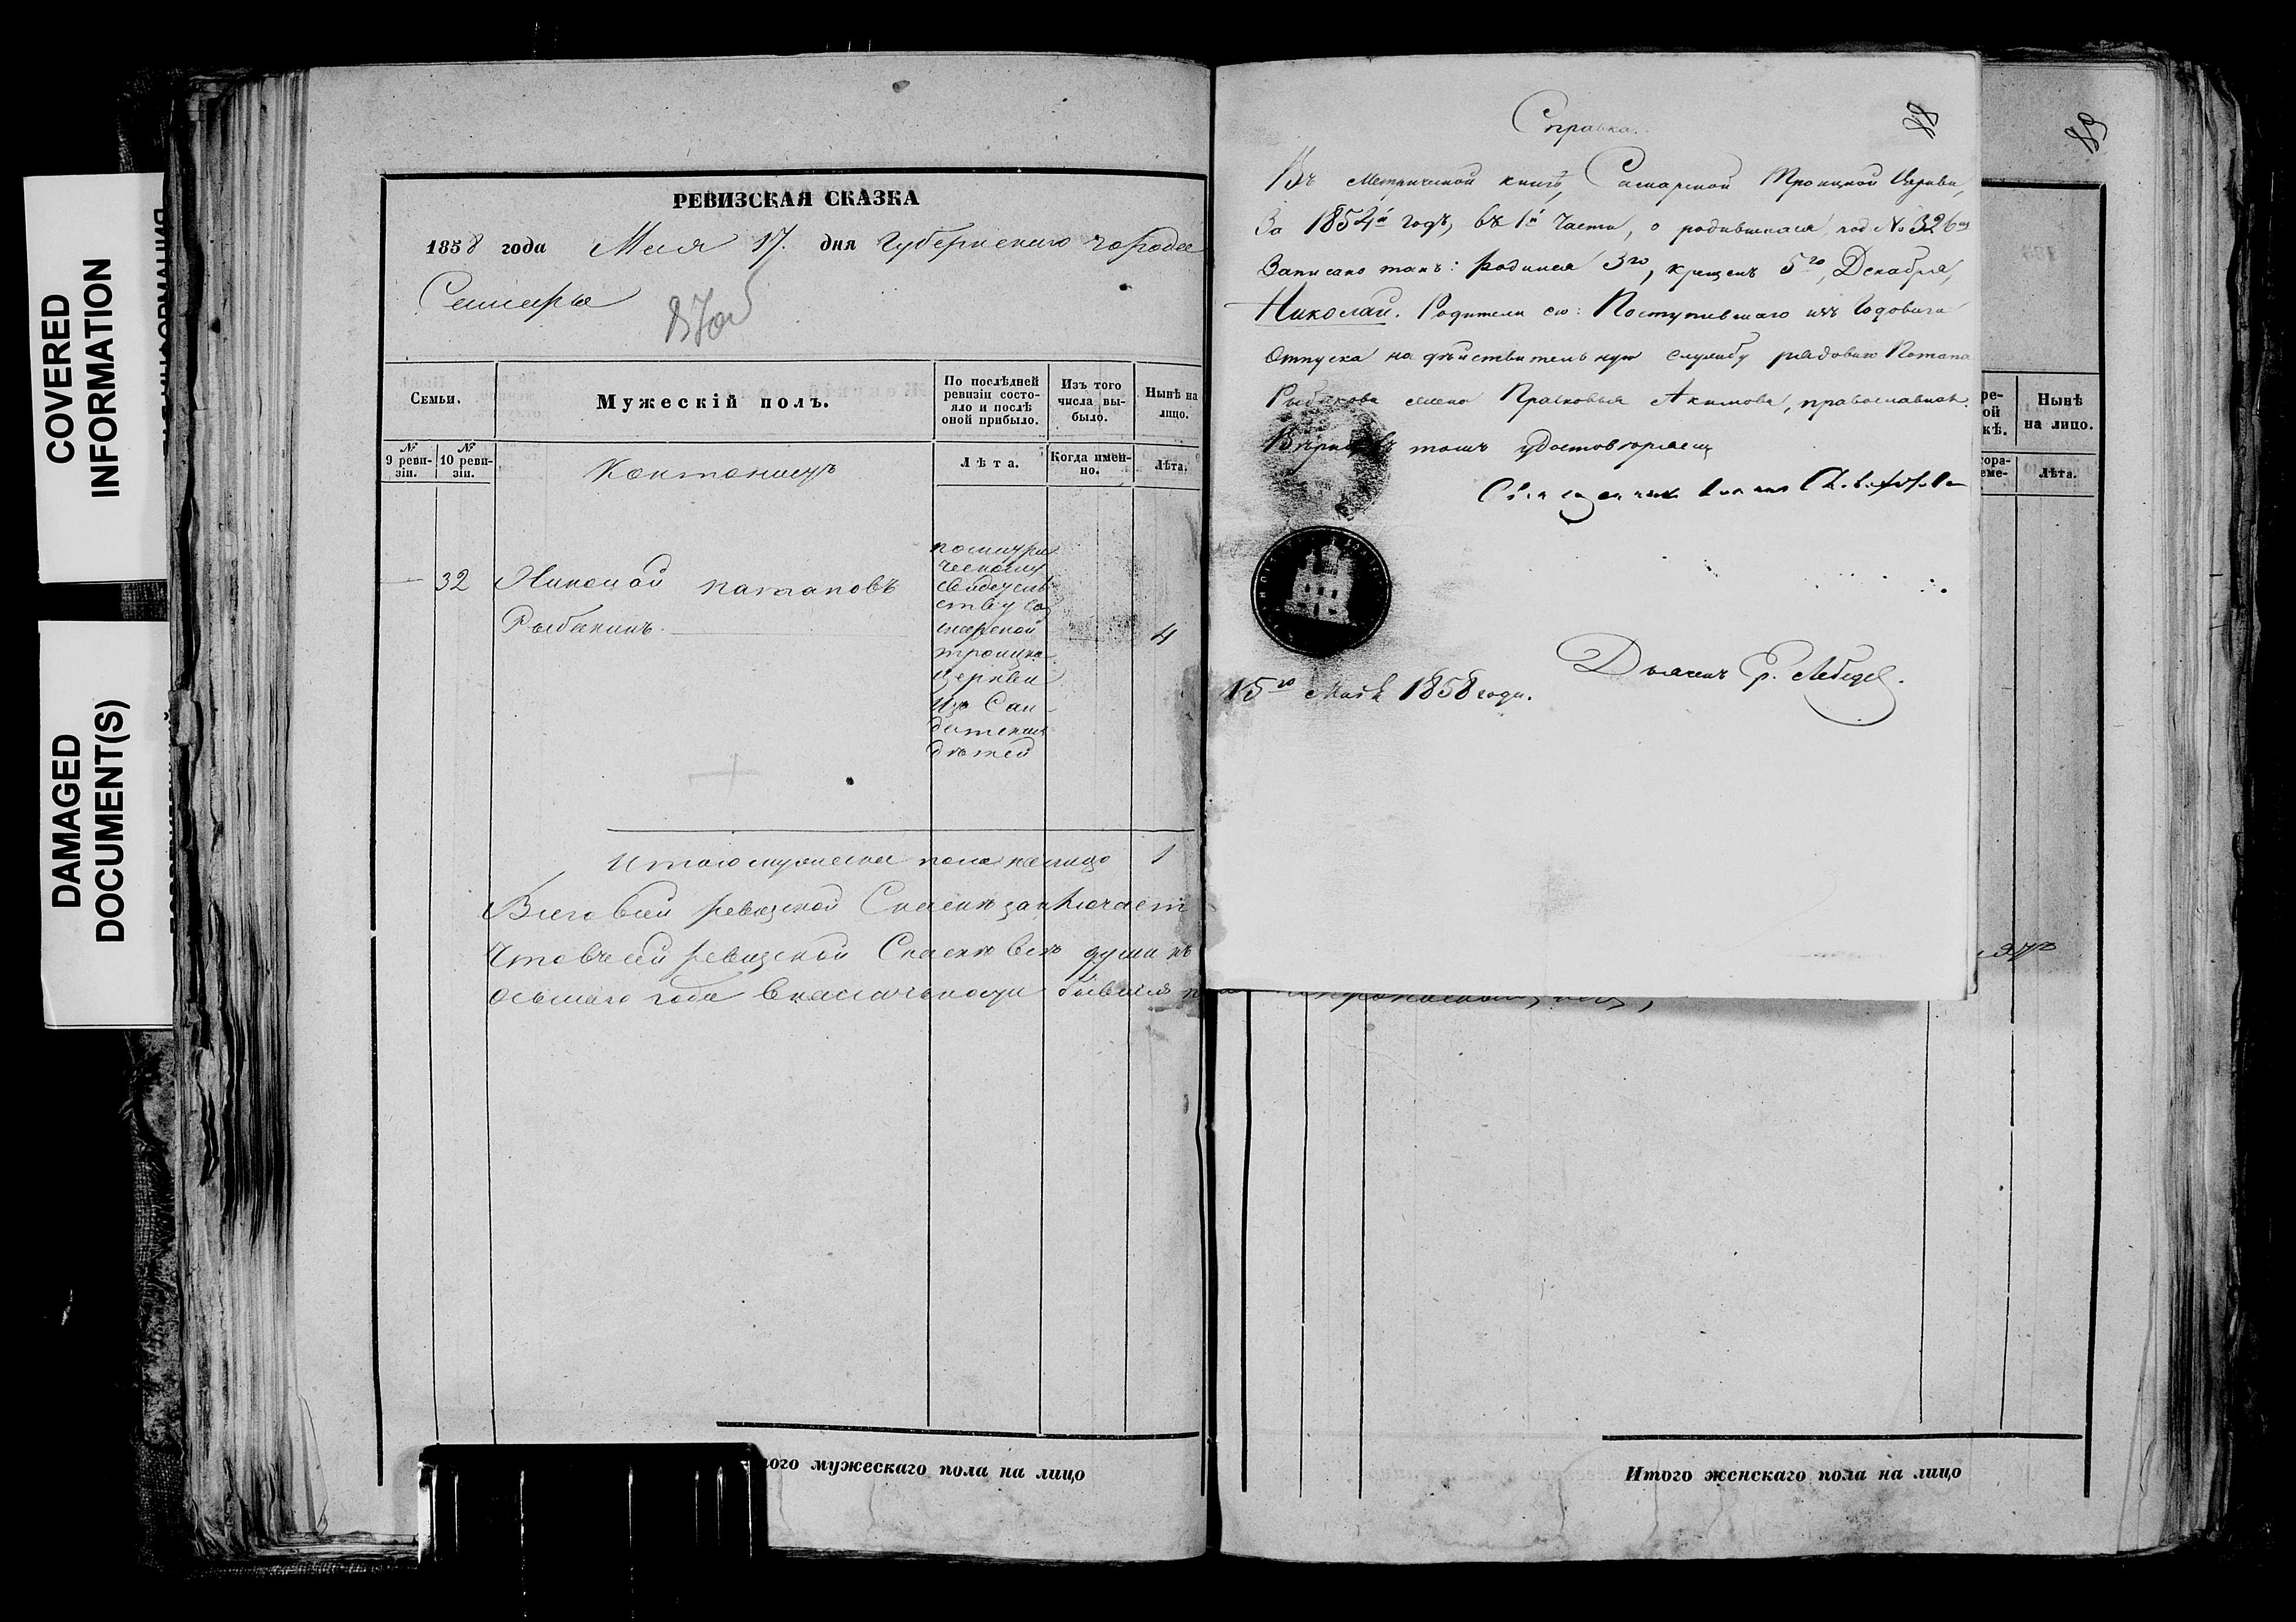 COVERED
INFORMATION
DAMAGED
DOCUMENT(S)
РЕВИЗСКАЯ СКАЗКА
1858 года Мая 17. дня Губернскаго города
Самары
Семьи.
Мужескій полъ.
По послѣдней
ревизіи состо-
яло и послѣ
оной прибыло.
Изъ того
числа вы-
было.
Нынѣ на
лицо.
№
9 реви-
зіи.
№
10 реви-
зіи.
Кантонистъ
Лѣта.
Когда имен-
но.
Лѣта.
— 32 Николай Патаповъ
Рыбакинъ.
4
по метри
ческому
свидетель
ству Са
марской
троицко
церкви
изъ Сал
датскихъ
дѣтей
Итого мужеска пола налицо 1
Всего в сей ревизской Сказкѣ заключает
Что в сей ревизской Сказкѣ всѣ души къ
осьмаго года в наличности бывшія
того мужескаго пола на лицо
Справка.
88
Въ метрической книгѣ, Самарской Троицкой Церкви,
За 1854й годъ, въ 1й части, о родившихся под № 326
Записано такъ: родился 3го, крещенъ 5го, Декабря,
Николай. Родители его: Поступившаго изъ Годоваго
Отпуска на дѣйствительную службу рядоваго Потапа
Рыбакова жена Прасковья Акимова, православнаго
Вѣрно въ томъ удостовѣряемъ
Священникъ Іоаннъ
Дьяконъ Гр. Лебедев.
15го Мая 1858 года.
89
ре-
ой
кѣ.
Нынѣ
на лицо.
ора-
еме-
Лѣта.
Итого женскаго пола на лицо